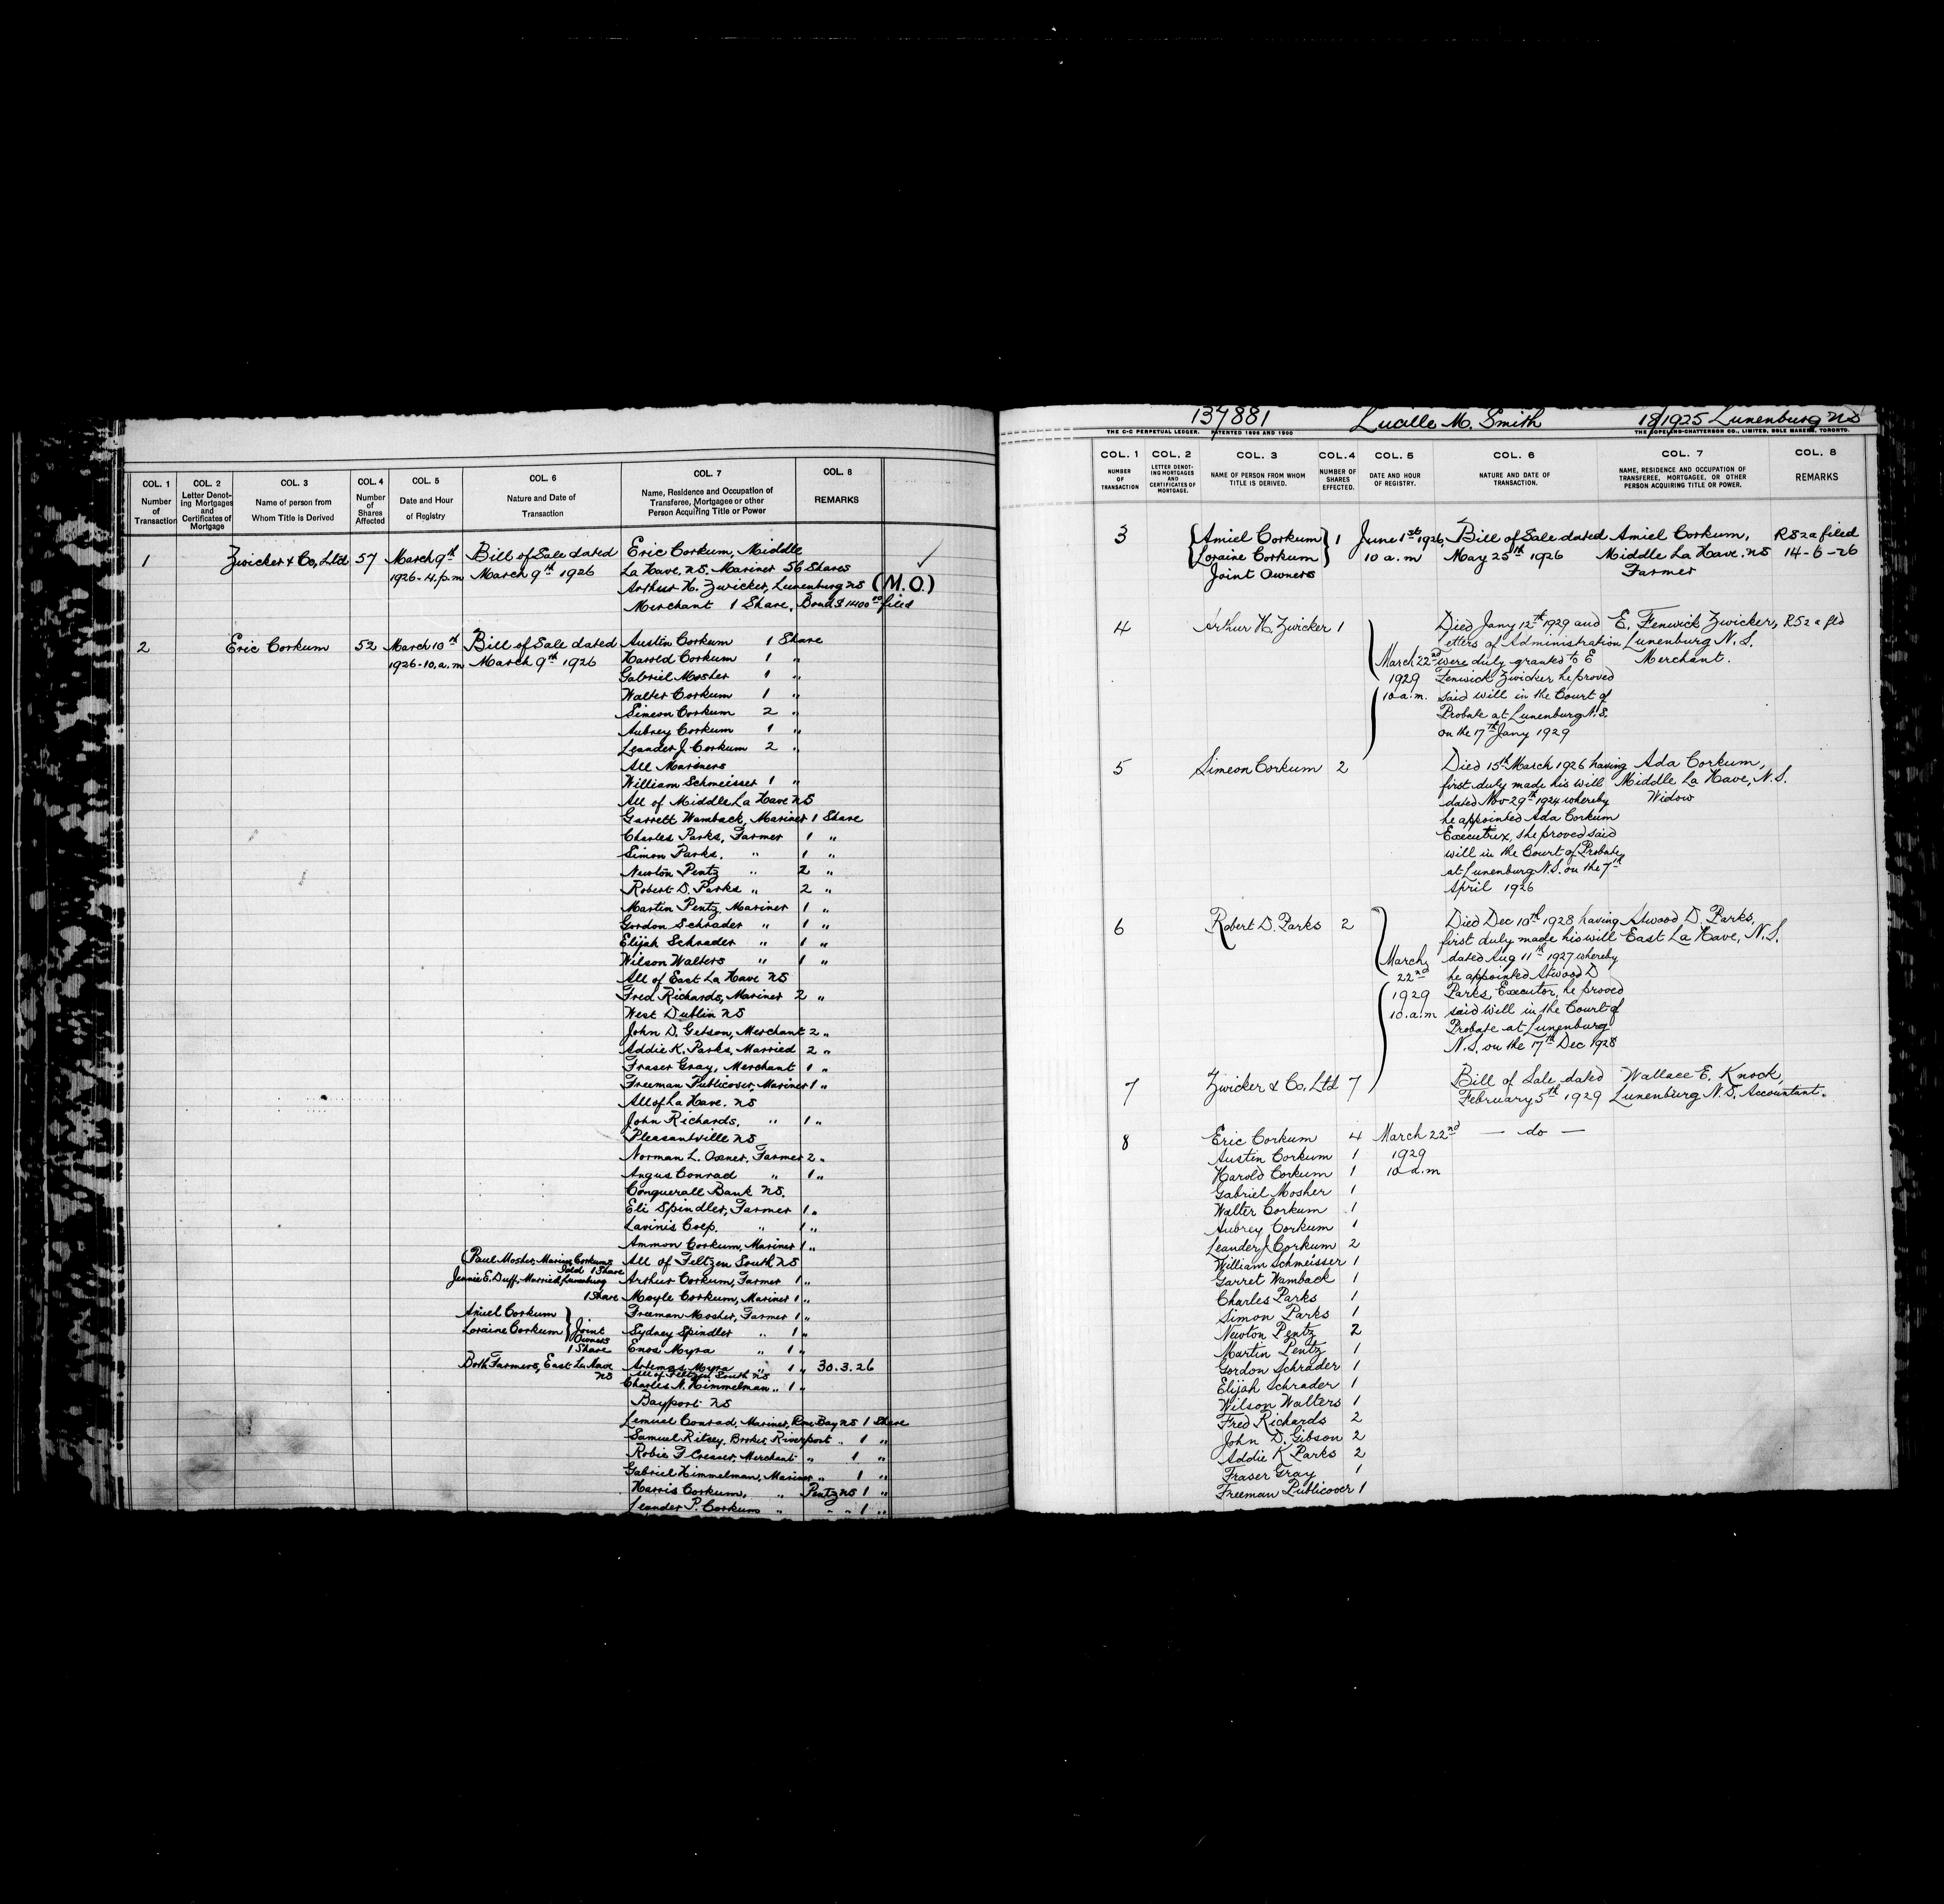 COL. 1 COL. 2 COL. 3 COL. 4 COL. 5 COL. 6 COL. 7 COL. 8
Number of Transaction
Letter Denoting Mortgages and Certificates of Mortgage
Name of person from Whom Title is Derived
Number of Shares Affected
Date and Hour of Registry
Nature and Date of Transaction
Name, Residence and Occupation of Transferee, Mortgagee or other Person Acquiring Title or Power
REMARKS
1 Zwicker & Co, Ltd 57 March 9th Bill of Sale dated Eric Corkum, Middle
1926-4.p.m March 9th 1926 La Have, N.S. Mariner 56 Shares
Arthur H. Zwicker, Lunenburg NS (M.O.)
Merchant 1 Share, Bond $1400.00 filed
2 Eric Corkum 52 March 10th Bill of Sale dated Austin Corkum 1 Share
1926-10.a.m March 9th 1926 Harold Corkum 1 "
Gabriel Mosher 1 "
Walter Corkum 1 "
Simeon Corkum 2 "
Aubrey Corkum 1 "
Leander J. Corkum 2 "
All Mariners
William Schmeisser 1 "
All of Middle La Have NS
Garrett Wamback, Mariner 1 Share
Charles Parks, Farmer 1 "
Simon Parks, " 1 "
Newton Pentz " 2 "
Robert D. Parks " 2 "
Martin Pentz, Mariner 1 "
Gordon Schrader " 1 "
Elijah Schrader " 1 "
Wilson Walters " 1 "
All of East La Have NS
Fred Richards, Mariner 2 "
West Dublin NS
John D. Getson, Merchant 2 "
Addie K. Parks, Married 2 "
Fraser Gray, Merchant 1 "
Freeman Publicover, Mariner 1 "
All of La Have. NS
John Richards, " 1 "
Pleasantville NS
Norman L. Oxner, Farmer 2 "
Angus Conrad " 1 "
Conquerall Bank NS.
Eli Spindler, Farmer 1 "
Lavinis " 1 "
Ammon Corkum, Mariner 1 "
(Paul Mosher, Mariner, Corkums All of Feltzen South NS
Island 1 Share
Jennie E. Duff, Married, Lunenburg Arthur Corkum, Farmer 1 "
1 Share Moyle Corkum, Mariner 1 "
Amiel Corkum } Freeman Mosher, Farmer 1 "
Loraine Corkum } Joint Owners Sydney Spindler " 1 "
1 Share Enos Myra " 1 "
Both Farmers, East La Have NS Artemas Myra " 1 " 30.3.26
All of Feltzen South NS
Charles N. Himmelman " 1 "
Bayport NS
Lemuel Conrad, Mariner, Rose Bay NS 1 Share
Samuel Ritcey, Broker, Riverport " 1 "
Robie F Creaser, Merchant " 1 "
Gabriel Himmelman, Mariner " 1 "
Harris Corkum, " Pentz NS 1 "
Leander P. Corkum " " " 1 "
137881 Lucille M. Smith 18/1925 Lunenburg NS
THE C-C PERPETUAL LEDGER. PATENTED 1898 AND 1900 THE COPELAND-CHATTERSON CO., LIMITED, SOLE MAKERS, TORONTO.
COL. 1 COL. 2 COL. 3 COL. 4 COL. 5 COL. 6 COL. 7 COL. 8
NUMBER OF TRANSACTION
LETTER DENOTING MORTGAGES AND CERTIFICATES OF MORTGAGE.
NAME OF PERSON FROM WHOM TITLE IS DERIVED.
NUMBER OF SHARES EFFECTED.
DATE AND HOUR OF REGISTRY.
NATURE AND DATE OF TRANSACTION.
NAME, RESIDENCE AND OCCUPATION OF TRANSFEREE, MORTGAGEE, OR OTHER PERSON ACQUIRING TITLE OR POWER.
REMARKS
3 {Amiel Corkum} 1 June 1st 1926, Bill of Sale dated Amiel Corkum, R52a filed
{Loraine Corkum} 10 a.m May 25th 1926 Middle La Have. NS 14-6-26
Joint Owners Farmer
4 Arthur H. Zwicker 1 Died Jany 12th 1929 and E. Fenwick Zwicker, R52a fld
Letters of Administration Lunenburg N.S.
March 22nd were duly granted to E Merchant.
1929 Fenwick Zwicker he proved
10 a.m. said will in the Court of
Probate at Lunenburg N.S.
on the 17th Jany 1929
5 Simeon Corkum 2 Died 15th March 1926 having Ada Corkum,
first duly made his will Middle La Have, N.S.
dated Nov 29th 1924 whereby Widow
he appointed Ada Corkum
Executrix, she proved said
will in the Court of Probate
at Lunenburg N.S. on the 7th
April 1926
6 Robert D. Parks 2 Died Dec 10th 1928 having Atwood D. Parks,
first duly made his will East La Have, N.S.
March dated Aug 11th 1927 whereby
22nd he appointed Atwood D
1929 Parks, Executor, he proved
10.a.m said will in the Court of
Probate at Lunenburg
N.S. on the 17th Dec 1928
7 Zwicker & Co, Ltd 7 Bill of Sale dated Wallace E. Knock,
February 5th 1929 Lunenburg N.S. Accountant.
8 Eric Corkum 4 March 22nd — do —
Austin Corkum 1 1929
Harold Corkum 1 10 a.m
Gabriel Mosher 1
Walter Corkum 1
Aubrey Corkum 1
Leander J Corkum 2
William Schmeisser 1
Garret Wamback 1
Charles Parks 1
Simon Parks 1
Newton Pentz 2
Martin Pentz 1
Gordon Schrader 1
Elijah Schrader 1
Wilson Walters 1
Fred Richards 2
John D. Gibson 2
Addie K Parks 2
Fraser Gray 1
Freeman Publicover 1